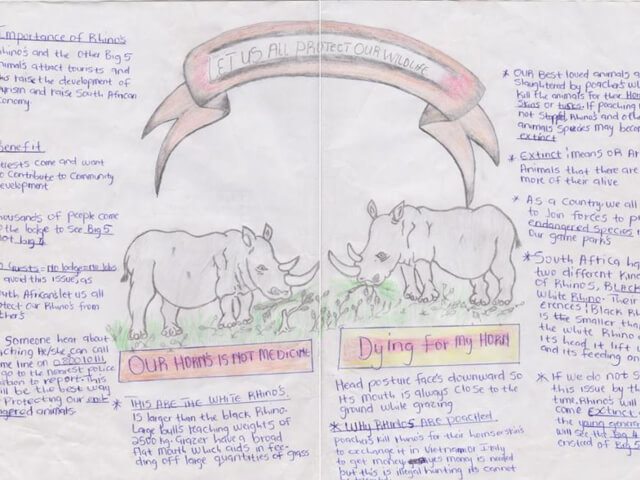 Importance of Rhino's
Rhino's and the Other Big 5
animals attract tourists and
raise the development of
and raise South African
Benefit
guests come and want
to contribute to Community
Development
thousands of people come
the lodge to See Big 5
not big 4
Guests = No lodge = No Jobs
avoid this issue, as
South Africans let us all
protect Our Rhino's from
Someone hear about
he/she can call
line on 0800 10111
go to the nearest police
to report. This
be the best way
Protecting our
animals
LET US ALL PROTECT OUR WILDLIFE
OUR HORNS IS NOT MEDICINE
Dying For My HORN
* THIS ARE THE WHITE RHINO'S.
IS larger than the black Rhino.
Large bulls reaching weights of
2500 kg. Grazer have a broad
flat mouth which aids in fee-
ding off large quantities of grass
Head posture face's downward so
its mouth is always close to the
ground while grazing
* WHY RHINOS ARE POACHED
poachers kill rhinos for their horns or skins
to exchange it in Vietnam or Italy
to get money yes money is needed
but this is illegal hunting its cannot
* OUR Best loved animals
Slaughtered by poachers
kill the animals for their
Skins or tusks. If poaching
not stopped, Rhinos and
animals species may
extinct
* Extinct: means
Animals that there are
more of their alive
* As a Country we all
to Join forces to
endangered species
Our game parks
* South Africa
two different
of Rhinos,
White Rhino.
Black Rh
is the smaller
the white Rhino
its head it
and its feeding
* If we do not
this issue by
time. Rhinos will
come Extinct
the young
will See the Big 4
instead of Big 5